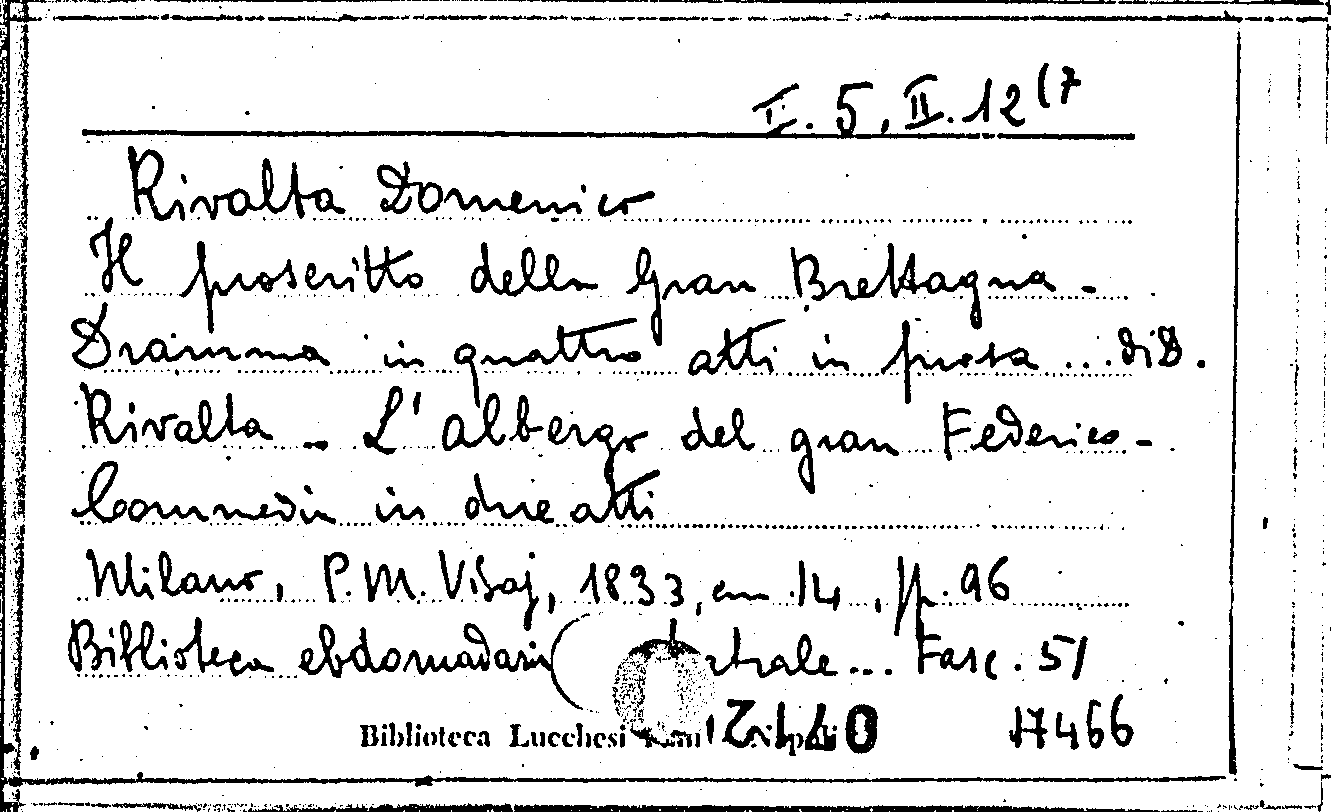 I. 5. II. 12 (7
Rivalta Domenico
Il proscritto della Gran Brettagna -
Dramma in quattro atti in prosa ... di D.
Rivalta - L'albergo del gran Federico -
Commedia in due atti
Milano, P. M. Visaj, 1833, cm 14, pp. 96
Biblioteca ebdomadaria ... Fasc. 51
Biblioteca Lucchesi 17466